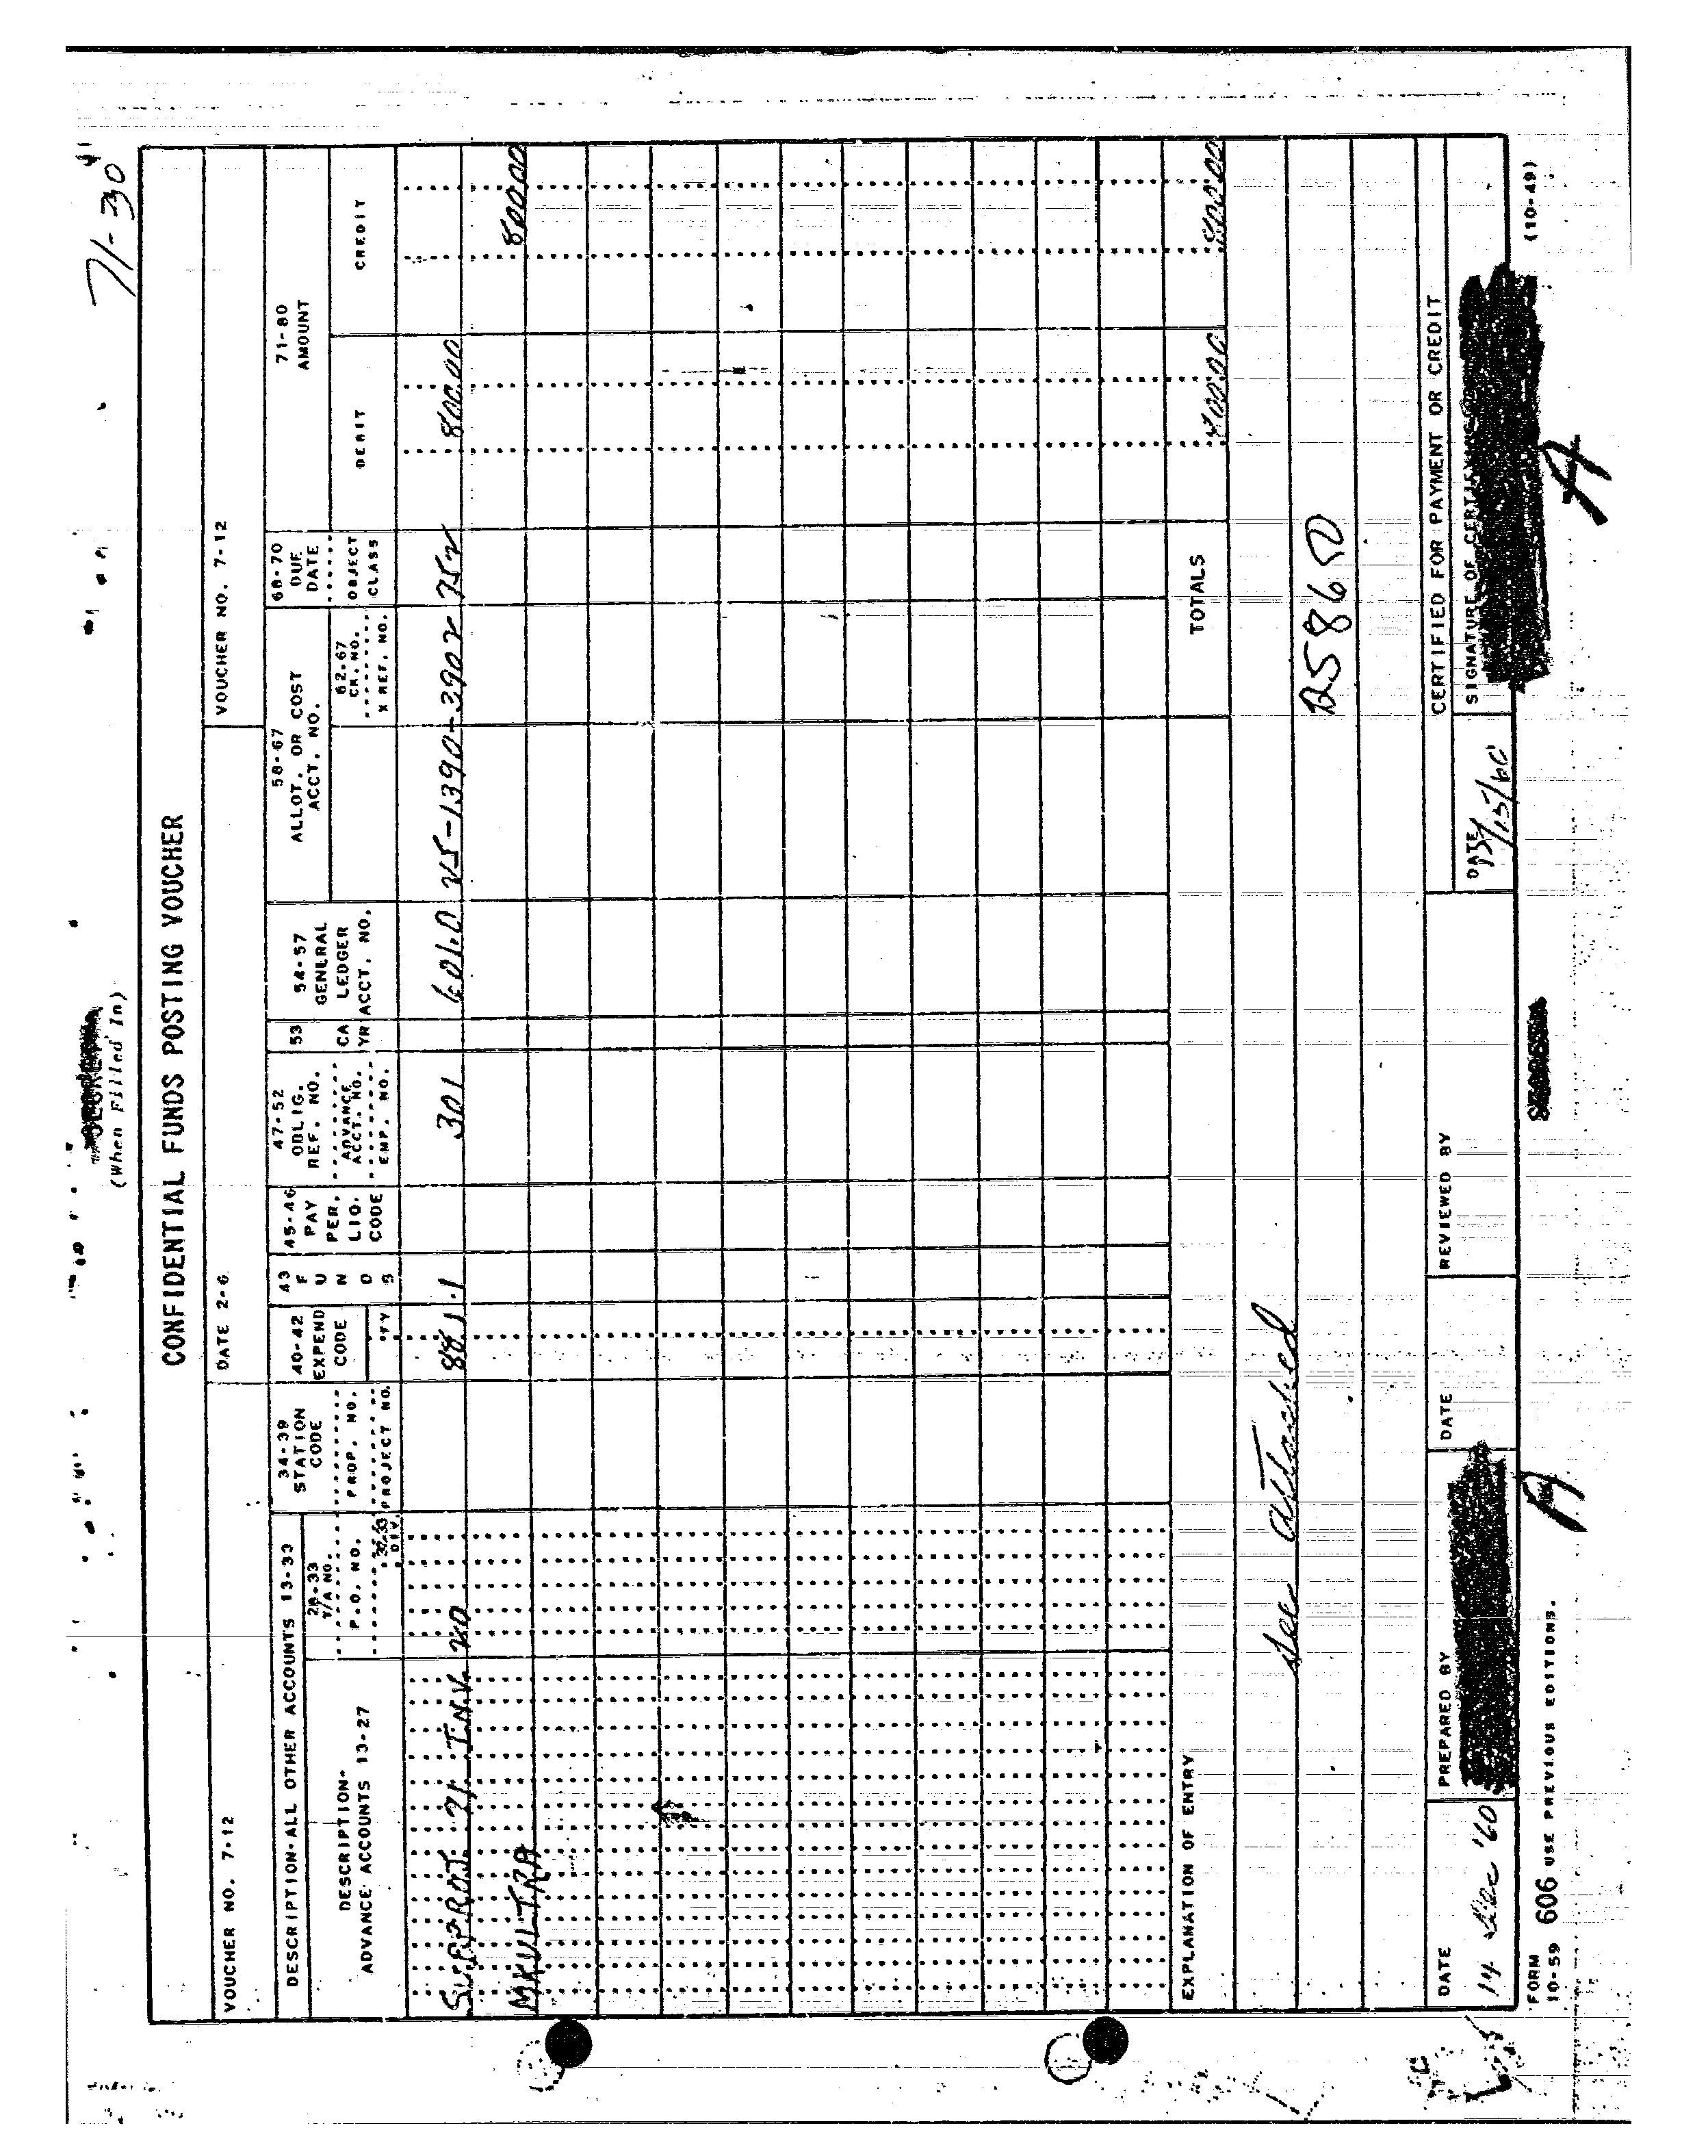 71-30
(When Filled In)
CONFIDENTIAL FUNDS POSTING VOUCHER
VOUCHER NO. 7-12 DATE 2-6 VOUCHER NO. 7-12
DESCRIPTION-ALL OTHER ACCOUNTS 13-33
DESCRIPTION-
ADVANCE ACCOUNTS 13-27
28-33
T/A NO.
P.O. NO.
DIV.
34-39
STATION
CODE
PROP. NO.
PROJECT NO.
40-42
EXPEND
CODE
43
F
U
N
D
S
45-46
PAY
PER.
LIQ.
CODE
47-52
OBLIG.
REF. NO.
ADVANCE
ACCT. NO.
EMP. NO.
53
CA
YR
54-57
GENERAL
LEDGER
ACCT. NO.
58-67
ALLOT. OR COST
ACCT. NO.
62-67
CK. NO.
X REF. NO.
68-70
DUE
DATE
OBJECT
CLASS
71-80
AMOUNT
DEBIT CREDIT
SUBPROJ. 71 INV. 20 301 601.0 800.00
MKULTRA 800.00
EXPLANATION OF ENTRY TOTALS 800.00 800.00
See attached
CERTIFIED FOR PAYMENT OR CREDIT
DATE PREPARED BY DATE REVIEWED BY DATE SIGNATURE OF
14 Dec '60
FORM
10-59 606 USE PREVIOUS EDITIONS. (10-49)
A